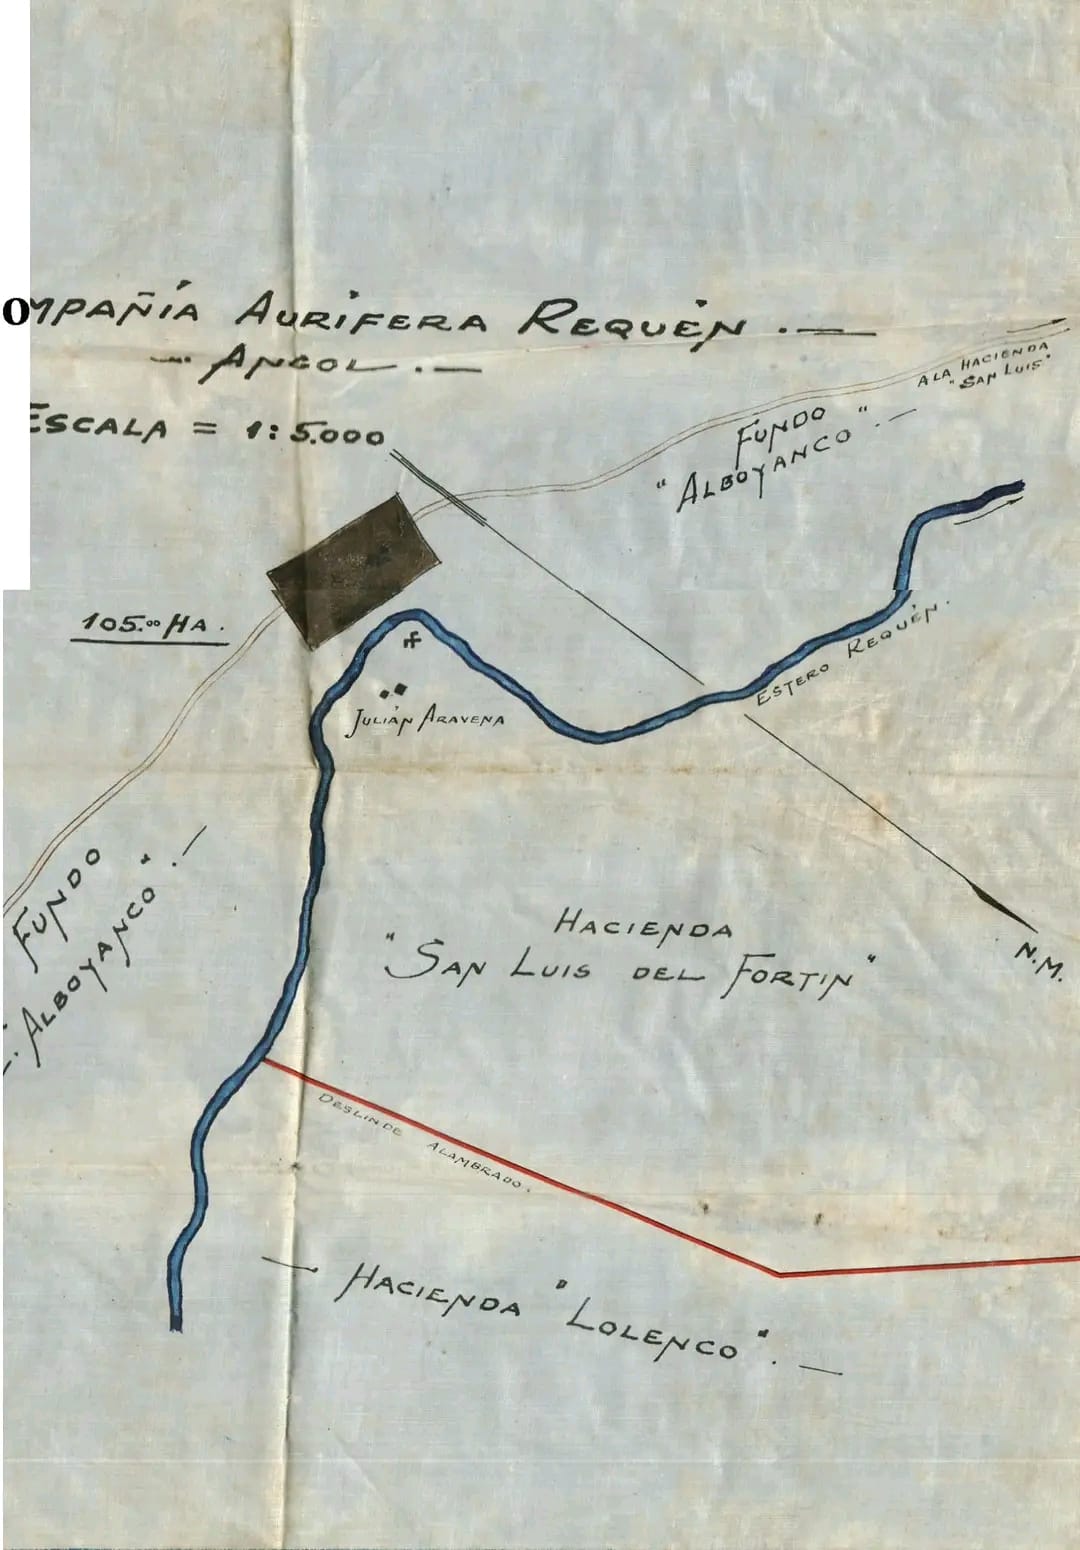 OMPAÑÍA AURÍFERA REQUÉN .—
— ANGOL . —
ESCALA = 1:5.000
A LA HACIENDA
"SAN LUIS"
FUNDO
"ALBOYANCO" . —
105.⁰⁰ HA .
ESTERO REQUÉN .
JULIÁN ARAVENA
FUNDO
"ALBOYANCO" . —
HACIENDA
"SAN LUIS DEL FORTIN"
N.M.
DESLINDE ALAMBRADO .
— HACIENDA "LOLENCO" . —